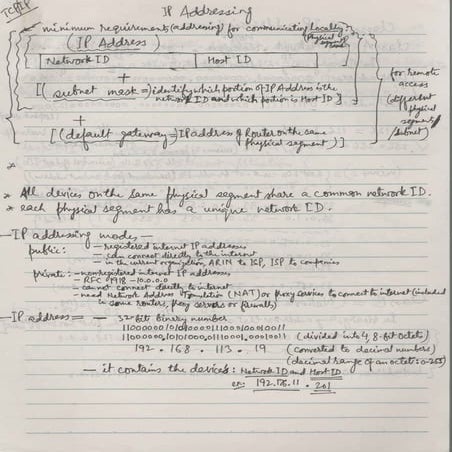 TCP/IP
IP Addressing
minimum requirements (addressing) for communicating locally
(physical
(IP Address)
Network ID | Host ID
+
[(subnet mask =) identify which portion of IP Address is the
network ID and which portion is Host ID]
for remote
access
(different
physical
segment/
subnet)
+
[(default gateway = IP address of Router on the same
physical segment)]
* All devices on the same physical segment share a common network ID.
* each physical segment has a unique network ID.
— IP addressing modes —
public: - registered internet IP addresses
- can connect directly to the internet
- in the current organization, ARIN to ISP, ISP to companies
private: - nonregistered internet IP addresses
- RFC 1918 - 10.0.0.0
- cannot connect directly to internet
- need Network Address Translation (NAT) or proxy services to connect to internet (included
in some routers, proxy servers or firewalls)
— IP address = - 32-bit binary number
11000000101010000111000100010011
11000000,10101000,01110001,00010011 (divided into 4, 8-bit octets)
192 . 168 . 113 . 19 (converted to decimal numbers)
(decimal range of an octet: 0-255)
— it contains the device's: Network ID and Host ID
ex: 192.168.11 . 201